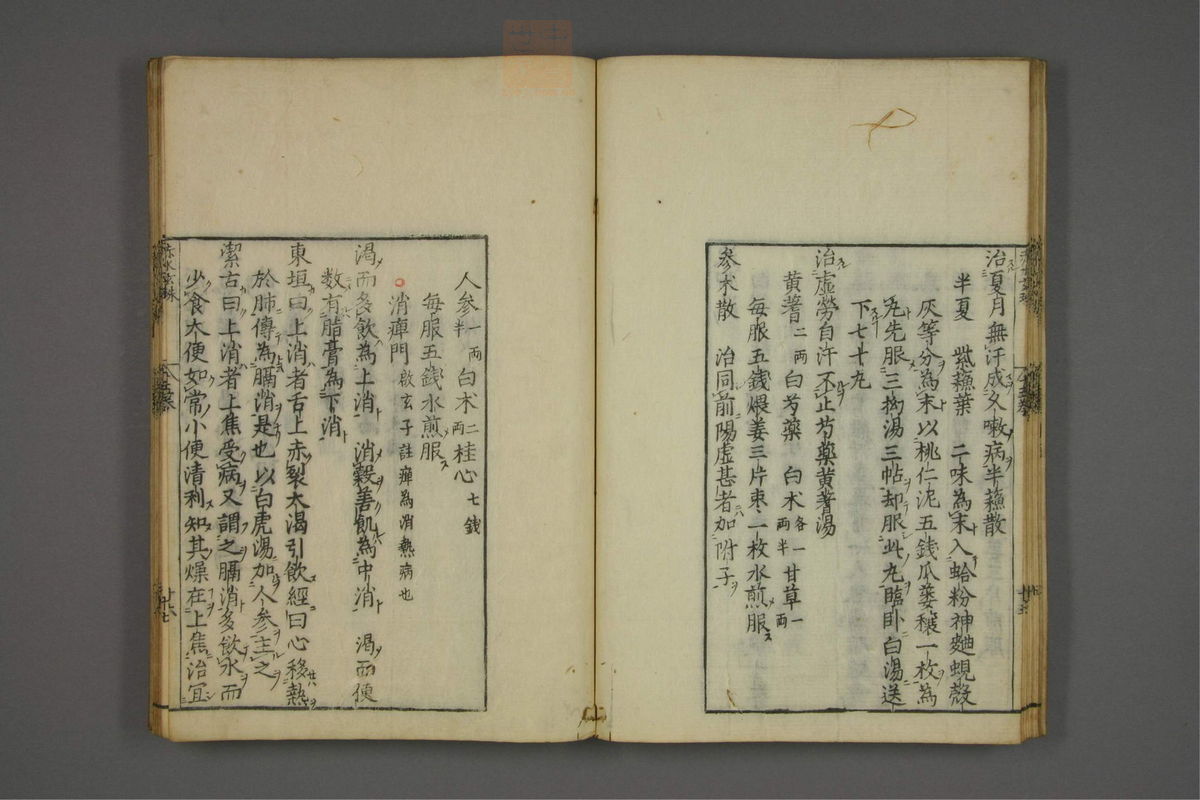 治夏月無汗成久嗽病半蘓散
半夏 紫蘓葉 二味為末入蛤粉神麯蜆殼
灰等分為末以桃仁泥五錢瓜蔞穰一枚為
丸先服三拗湯三帖却服此丸臨卧白湯送
下七十丸
治虚勞自汗不止芍藥黄蓍湯
黄蓍二両白芍藥 白术各一両半甘草一両
每服五錢煨姜三片棗一枚水煎服
参术散 治同前陽虚甚者加附子
人参一両半白术二両桂心七錢
每服五錢水煎服
消癉門啟玄子註癉為消熱病也
渴而多飲為上消 消穀善飢為中消 渴而便
数有脂膏為下消
東垣曰上消者舌上赤裂大渴引飲經曰心移熱
於肺傳為膈消是也以白虎湯加人参主之
潔古曰上消者上焦受病又謂之膈消多飲水而
少食大便如常小便清利知其燥在上焦治宜
赤水玄珠
廿七